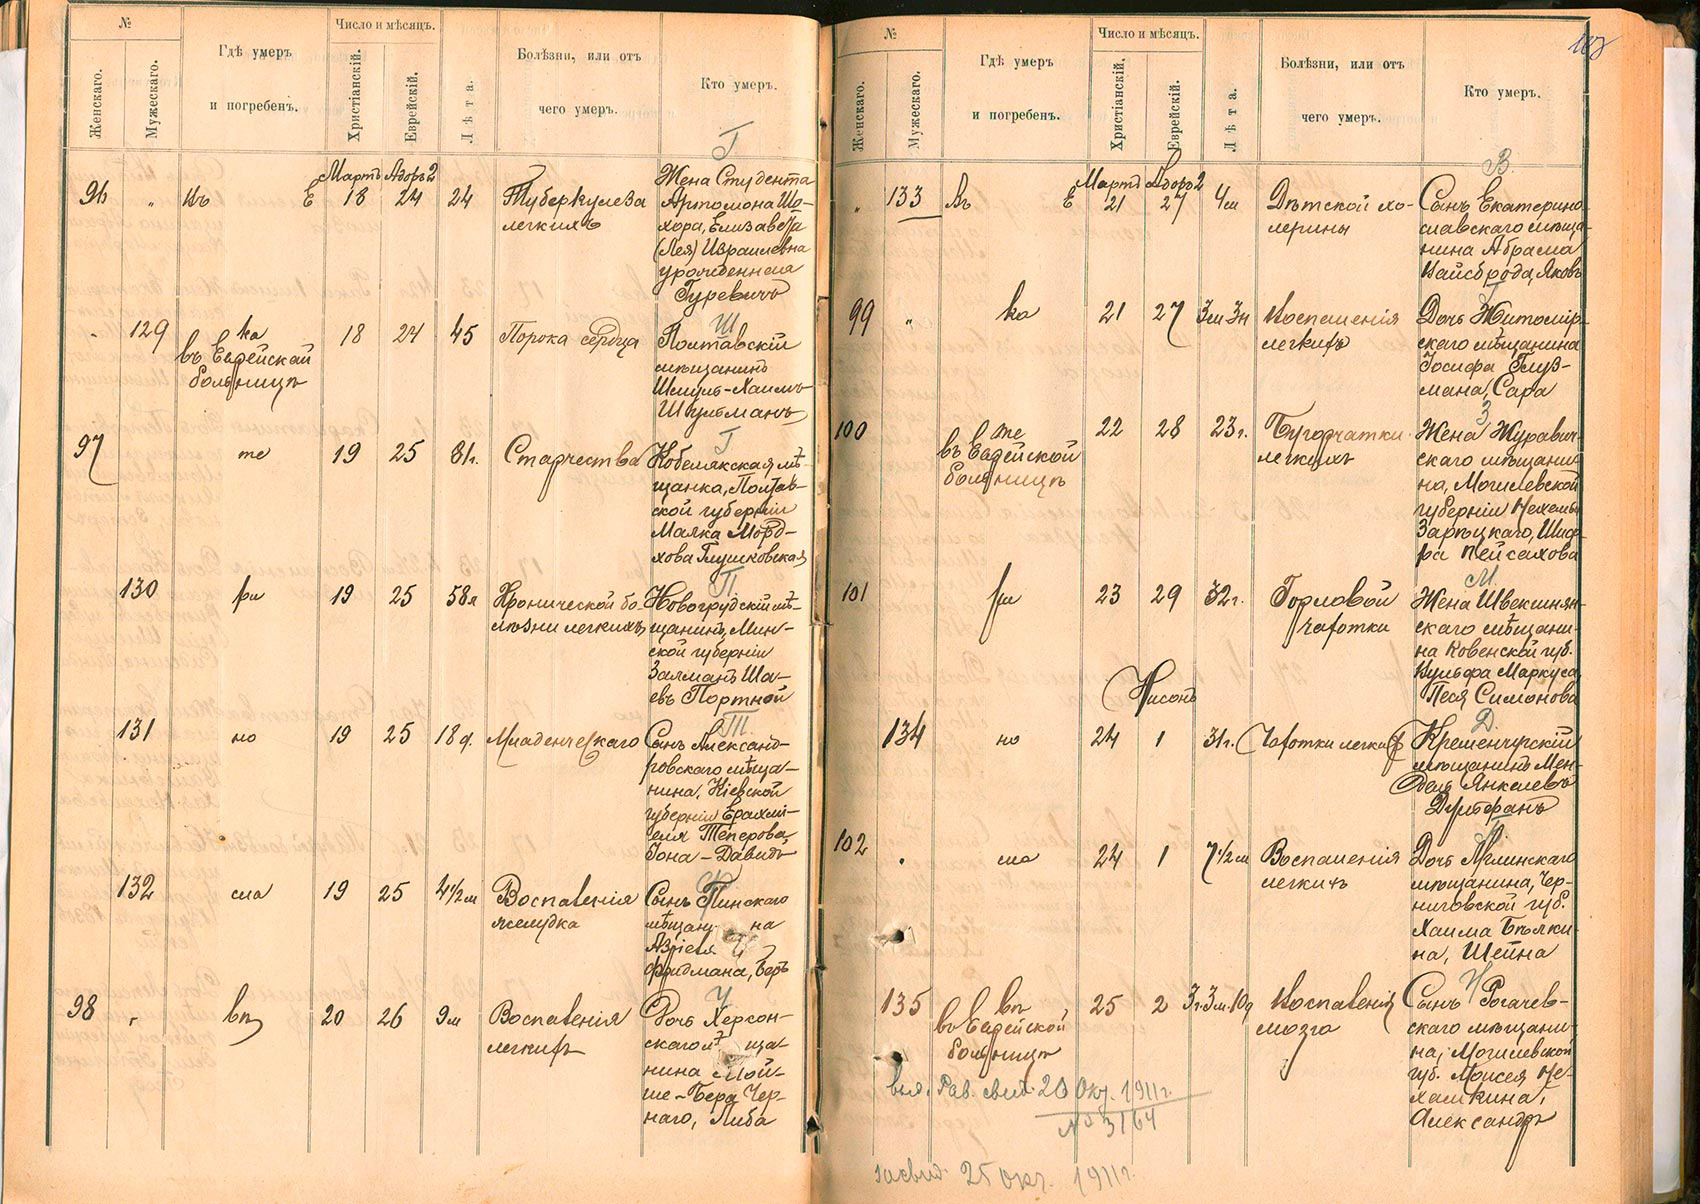 №
Женскаго.
Мужескаго.
Гдѣ умеръ
и погребенъ.
Число и мѣсяцъ.
Христіанскій.
Еврейскій.
Лѣта.
Болѣзни, или отъ
чего умеръ.
Кто умеръ.
Г
Мартъ Адоръ 2
96 " въ Е 18 24 24 Туберкулеза
легкихъ
Жена Студента
Артомона Шо-
хора, Елизавета
(Лея) Израилевна
урожденная
Гуревичъ
Ш
129 ка 18 24 45 Порока сердца
въ Еврейской
больницѣ
Полтавскій
мѣщанинъ
Шмуль-Хаимъ
Шульманъ
Г
97 те 19 25 81г. Старчества
Кобелякская мѣ-
щанка, Полтав-
ской губерніи
Малка Морд-
хова Глушковская
П.
130 ри 19 25 58л Хронической бо-
лѣзни легкихъ
Новогрудскій мѣ-
щанинъ, Мин-
ской губерніи
Залманъ Ша-
евъ Портной
Т.
131 но 19 25 18 д. Младенческаго
Сынъ Александ-
ровскаго мѣща-
нина, Кіевской
губерніи Ерахми-
еля Теперова,
Іона-Давидъ
Ф
132 сла 19 25 4 1/2 м Воспаленія
желудка
Сынъ Пинскаго
мѣщан на
Азріеля
Фридмана, Беръ
Ч
98 " въ 20 26 9м Воспаленія
легкихъ
Дочь Херсон-
скаго мѣ ща
нина Мой-
ше-Бера Чер-
наго, Либа
№
Женскаго.
Мужескаго.
Гдѣ умеръ
и погребенъ.
Число и мѣсяцъ.
Христіанскій.
Еврейскій.
Лѣта.
Болѣзни, или отъ
чего умеръ.
Кто умеръ.
В.
Мартъ Адоръ 2
" 133 Въ Е 21 27 4м Дѣтской хо-
лерины
Сынъ Екатерино-
славскаго мѣща-
нина Абрама
Вайсброда, Яковъ
Г
99 " ка 21 27 3м 3н Воспаленія
легкихъ
Дочь Житомір-
скаго мѣщанина
Іосифа Глуз-
мана, Сара
З
100 те 22 28 23г. Бугорчатки
въ Еврейской
больницѣ
легкихъ
Жена Журавич-
скаго мѣщани-
на, Могилевской
губерніи Нехемьи
Зарѣцкаго, Шиф-
ра Пейсахова
М.
101 ри 23 29 32г. Горловой
чахотки
Жена Швекшнян-
скаго мѣщани-
на Ковенской губ.
Вульфа Маркуса,
Песя Симонова
Нисонъ
Д.
134 но 24 1 31г. Чахотки легкихъ
Кременчугскій
мѣщанинъ Мен-
дель Янкелевъ
102 " сла 24 1 7 1/2 м Воспаленія
легкихъ
Дочь Мглинскаго
мѣщанина, Чер-
ниговской губ.
Хаима Бѣлки-
на, Шейна
Н
135 вп 25 2 3г.3м.10д Воспаленія
въ Еврейской
больницѣ
мозга
Сынъ Рогачев-
скаго мѣщани-
на, Могилевской
губ. Моисея Не-
хамкина,
Александръ
20 Окт. 1911г.
№ 3164
25 окт. 1911г.